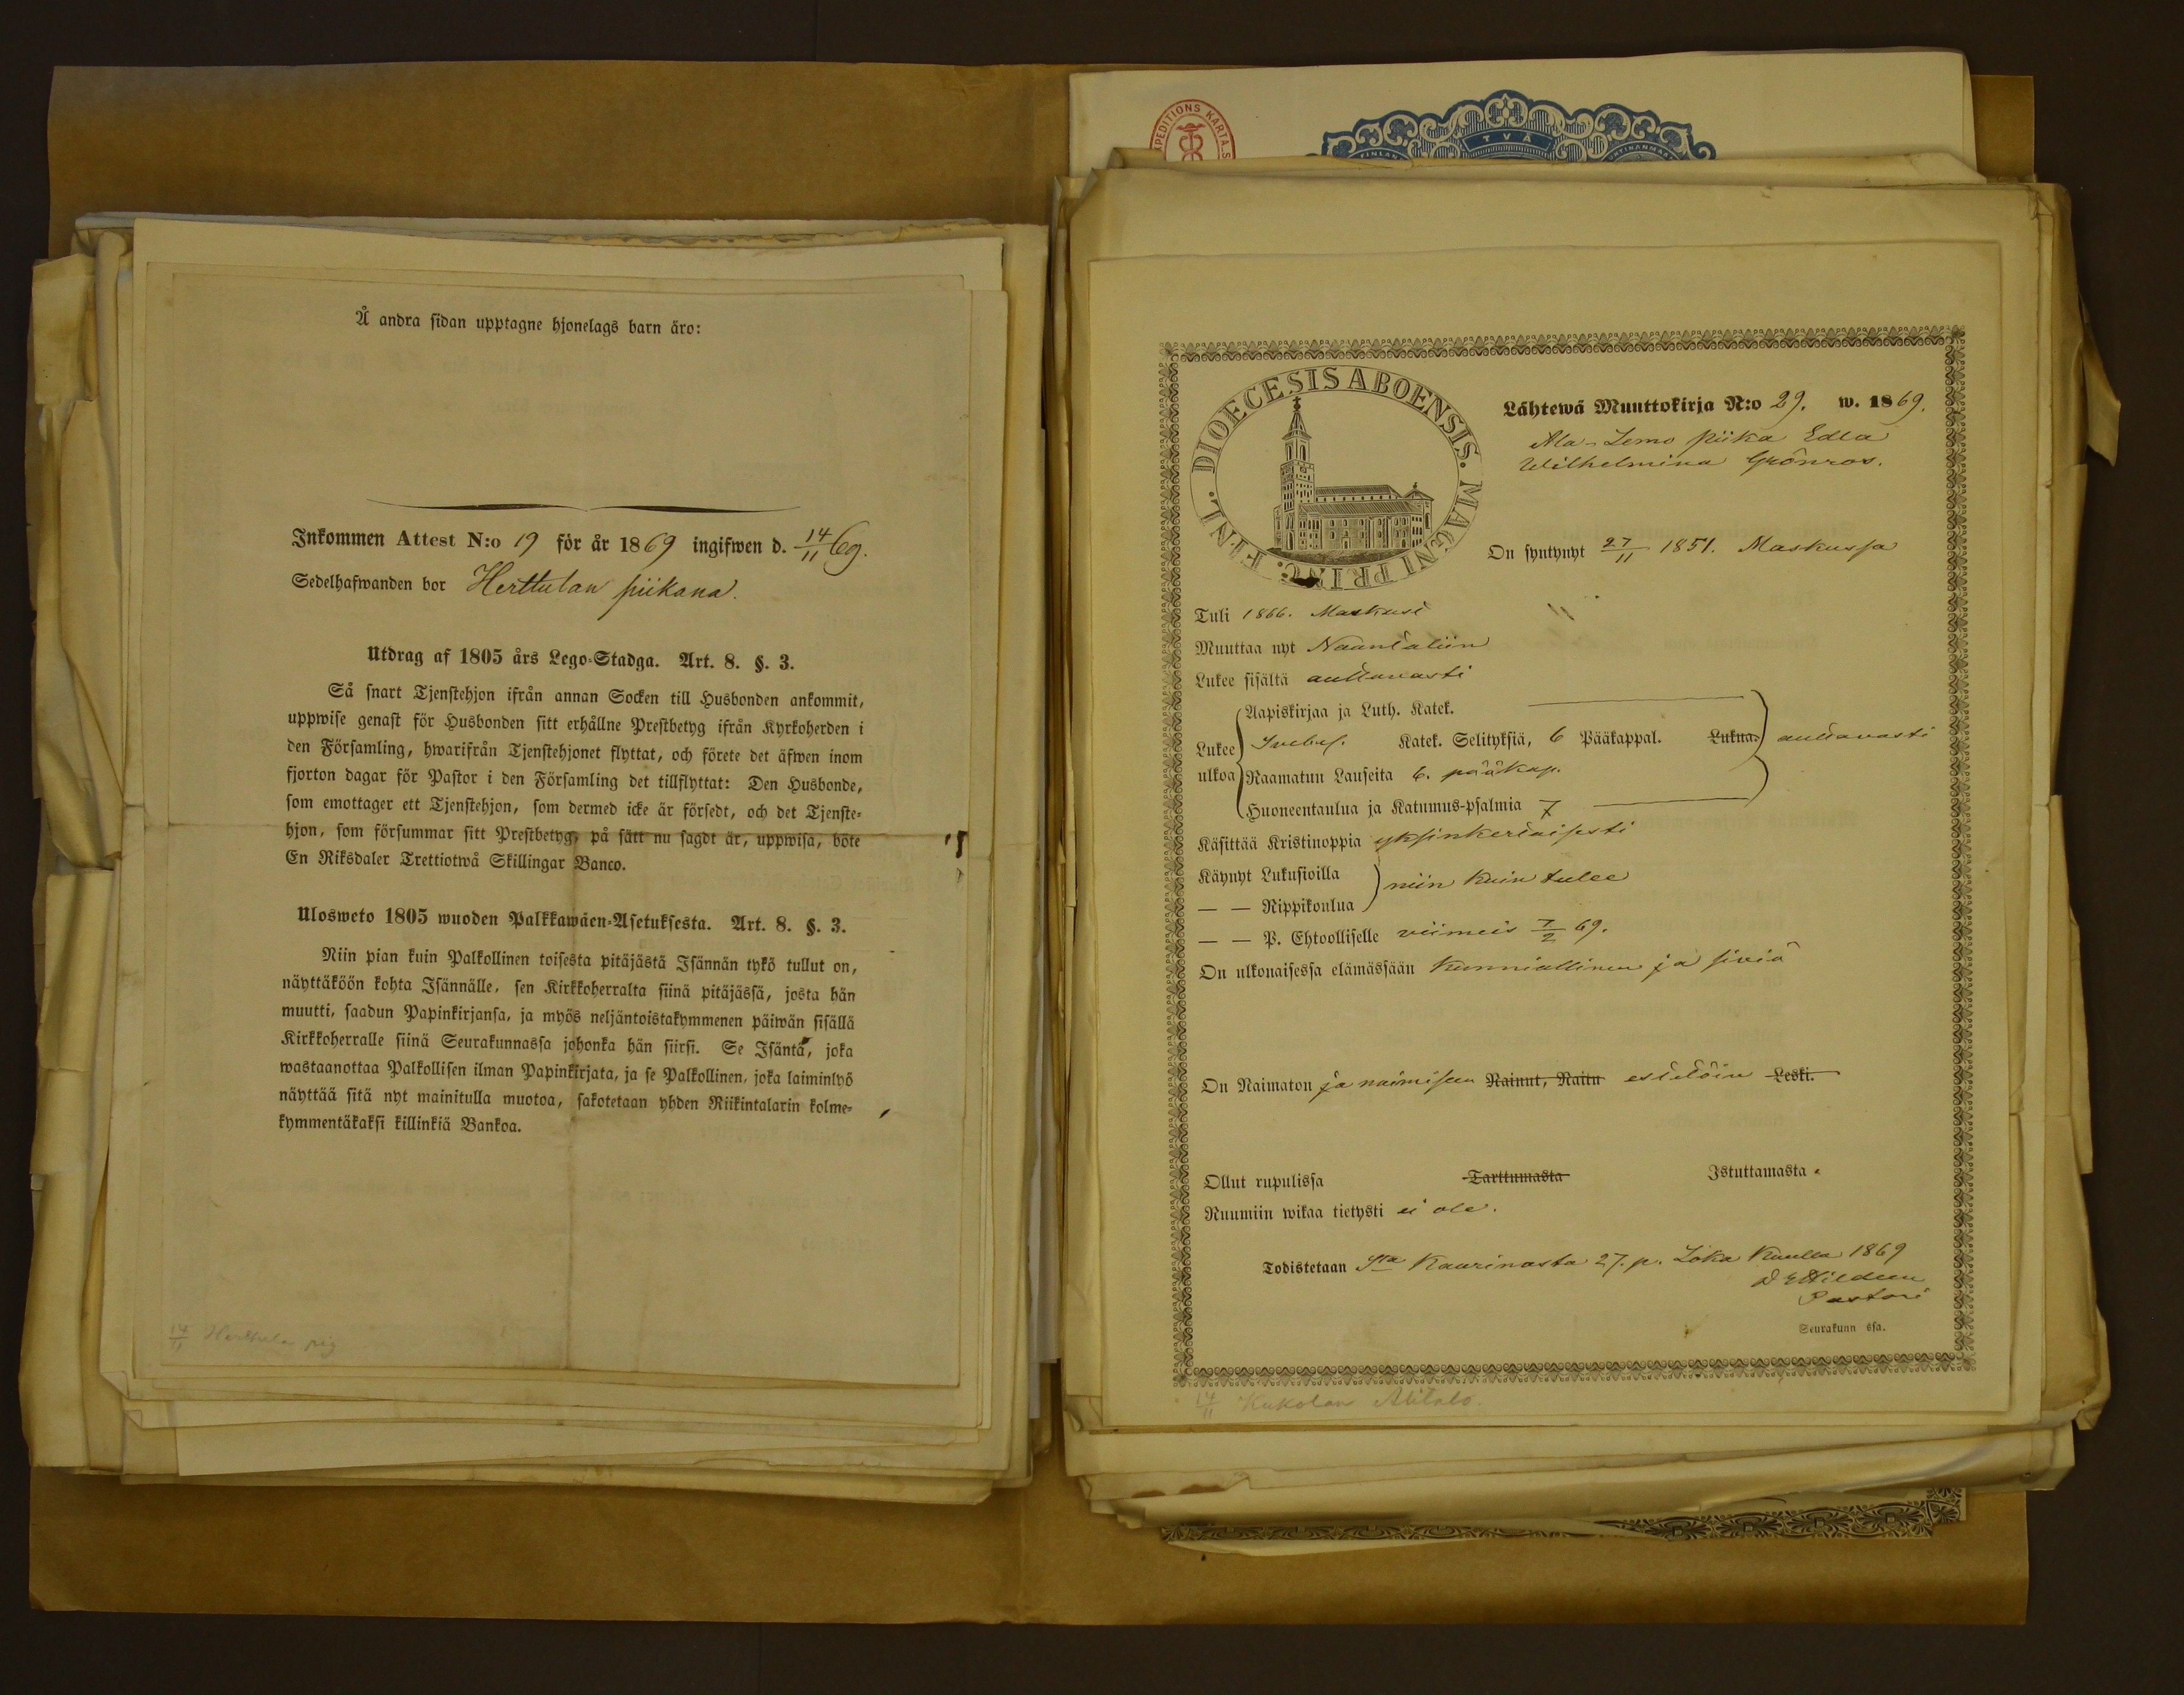 Å andra sidan upptagne hjonelags barn äro:
Inkommen Attest N:o 19 för år 1869 ingifwen d. 14/11 69.
Sedelhafwanden bor Herttulan piikana.
Utdrag af 1805 års Lego-Stadga. Art. 8. §. 3.
Så snart Tjenstehjon ifrån annan Socken till Husbonden ankommit,
uppwise genast för Husbonden sitt erhållne Prestbetyg ifrån Kyrkoherden i
den Församling, hwarifrån Tjenstehjonet flyttat, och förete det äfwen inom
fjorton dagar för Pastor i den Församling det tillflyttat: Den Husbonde,
som emottager ett Tjenstehjon, som dermed icke är försedt, och det Tjenste-
hjon, som försummar sitt Prestbetyg, på sätt nu sagdt är, uppwisa, böte
En Riksdaler Trettiotwå Skillingar Banco.
Ulosweto 1805 wuoden Palkkawäen-Asetuksesta. Art. 8. §. 3.
Niin pian kuin Palkollinen toisesta pitäjästä Isännän tykö tullut on,
näyttäköön kohta Isännälle, sen Kirkkoherralta siinä pitäjässä, josta hän
muutti, saadun Papinkirjansa, ja myös neljäntoistakymmenen päiwän sisällä
Kirkkoherralle siinä Seurakunnassa johonka hän siirsi. Se Isäntä, joka
wastaanottaa Palkollisen ilman Papinkirjata, ja se Palkollinen, joka laiminlyö
näyttää sitä nyt mainitulla muotoa, sakotetaan yhden Riikintalarin kolme-
kymmentäkaksi killinkiä Bankoa.
14/11 Herttula pig
EXPEDITIONS KARTA.S
TVÅ
FINL. DIOECESIS ABOENSIS. MAGNI PRINC.
Lähtewä Muuttokirja N:o 29. w. 1869.
Ala-Lemo piika Edla
Wilhelmina Grönros.
On syntynyt 27/11 1851. Maskussa
Tuli 1866. Maskusi
Muuttaa nyt Naantaliin
Lukee sisältä auttavasti
Aapiskirjaa ja Luth. Katek.
Lukee ulkoa Svebel. Katek. Selityksiä, 6 Pääkappal. Lukua. auttavasti
Raamatun Lauseita 6. pääkap.
Huoneentaulua ja Katumus-psalmia 7
Käsittää Kristinoppia yksinkertaisesti
Käynyt Lukusioilla
— — Rippikoulua niin kuin tulee
— — P. Ehtoolliselle viimeis 7/2 69.
On ulkonaisessa elämässään kunniallinen ja siviä
On Naimaton ja naimiseen Nainut, Naitu estetöin Leski.
Ollut rupulissa Tarttumasta Istuttamasta.
Ruumiin wikaa tietysti ei ole.
Todistetaan Sta Kaarinasta 27. p. Loka Kuulla 1869
Pastori
Seurakunn ssa.
14/11 Kukolan Alitalo.